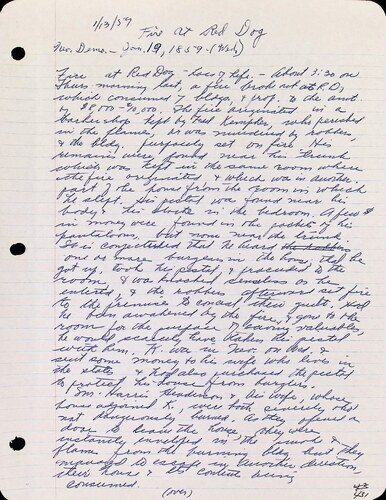 1/13/59
Fire at Red Dog
Nev. Demo. - Jan. 19, 1859 - (Wed)
Fire at Red Dog - loss of life. - About 3:30 on
Thurs. morning last, a fire broke out at R.D.,
which consumed bldgs. & prop. to the amt.
of $8,000 - 10,000. The fire originated in a
barber shop kept by Fred Kempler, who perished
in the flames, or was murdered by robbers,
& the bldg. purposely set on fire. His
remains were found near his trunk
which was kept in the same room where
the fire originated & which was in another
part of the house from the room in which
he slept. His pistol was found near his
body & his in the bedroom. A few $
in money were found in the pocket of his
pantaloons, but none near the trunk.
It is conjectured that he heard
one or more burglars in the house, that he
got up, took the pistol, & proceeded to the
room & was knocked senseless as he
entered, & the robbers afterward set fire
to the premises to conceal their guilt. Had
he been awakened by the fire, & gone to the
room for the purpose of saving valuables,
he would scarcely have taken his pistol
with him. K. was in Nev. on Wed. &
sent some money to his wife who lives in
the states & had also purchased the pistol
to protect his house from burglars.
Mr. Harris Henderson & his wife, whose
house against K., were both severely altho
not dangerously burned. As they opened a
door to leave the house, they were
instantly enveloped in the smoke &
flame from the burning bldg. but they
managed to escape in another direction,
their house & its contents being
consumed.
(over)